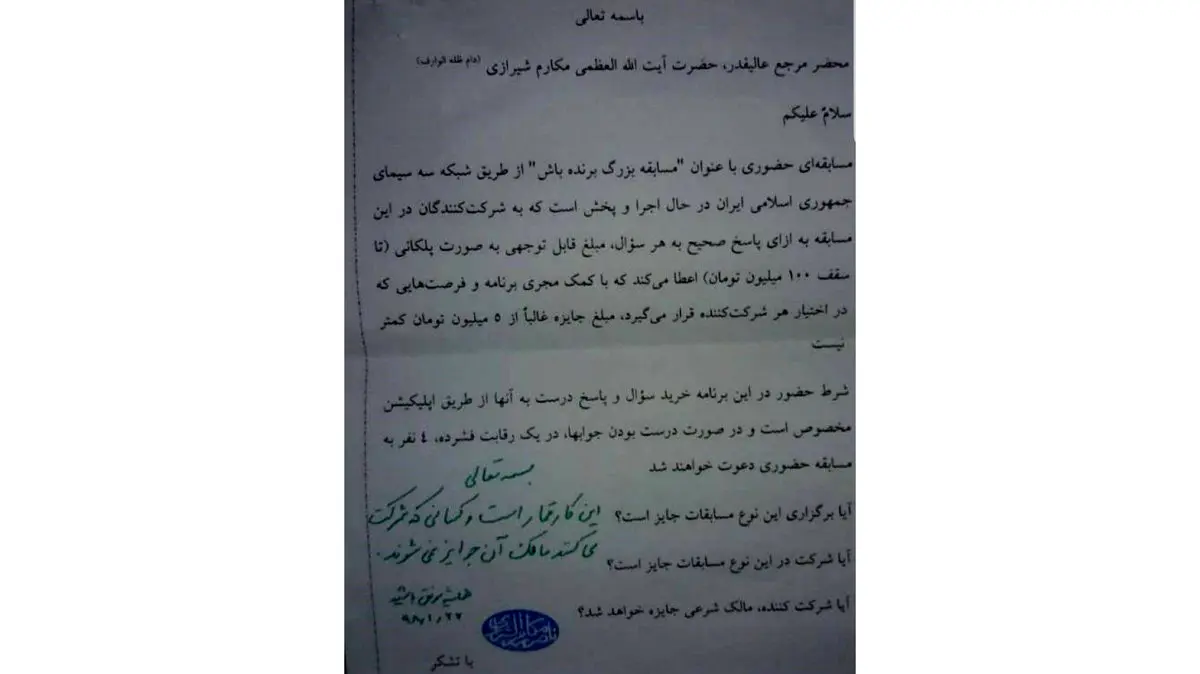 باسمه تعالی
محضر مرجع عالیقدر، حضرت آیت الله العظمی مکارم شیرازی (دام ظله الوارف)
سلامٌ علیکم
مسابقه‌ای حضوری با عنوان "مسابقه بزرگ برنده باش" از طریق شبکه سه سیمای
جمهوری اسلامی ایران در حال اجرا و پخش است که به شرکت‌کنندگان در این
مسابقه به ازای پاسخ صحیح به هر سؤال، مبلغ قابل توجهی به صورت پلکانی (تا
سقف ۱۰۰ میلیون تومان) اعطا می‌کند که با کمک مجری برنامه و فرصت‌هایی که
در اختیار هر شرکت‌کننده قرار می‌گیرد، مبلغ جایزه غالباً از ۵ میلیون تومان کمتر
نیست
شرط حضور در این برنامه خرید سؤال و پاسخ درست به آنها از طریق اپلیکیشن
مخصوص است و در صورت درست بودن جوابها، در یک رقابت فشرده، ٤ نفر به
مسابقه حضوری دعوت خواهند شد
آیا برگزاری این نوع مسابقات جایز است؟
آیا شرکت در این نوع مسابقات جایز است؟
آیا شرکت کننده، مالک شرعی جایزه خواهد شد؟
بسمه تعالی
این کار قمار است و کسانی که شرکت
می کنند مالک آن جوایز نمی شوند.
همیشه موفق باشید
۹۸/۱/۲۷
ناصر مکارم الشیرازی
با تشکر